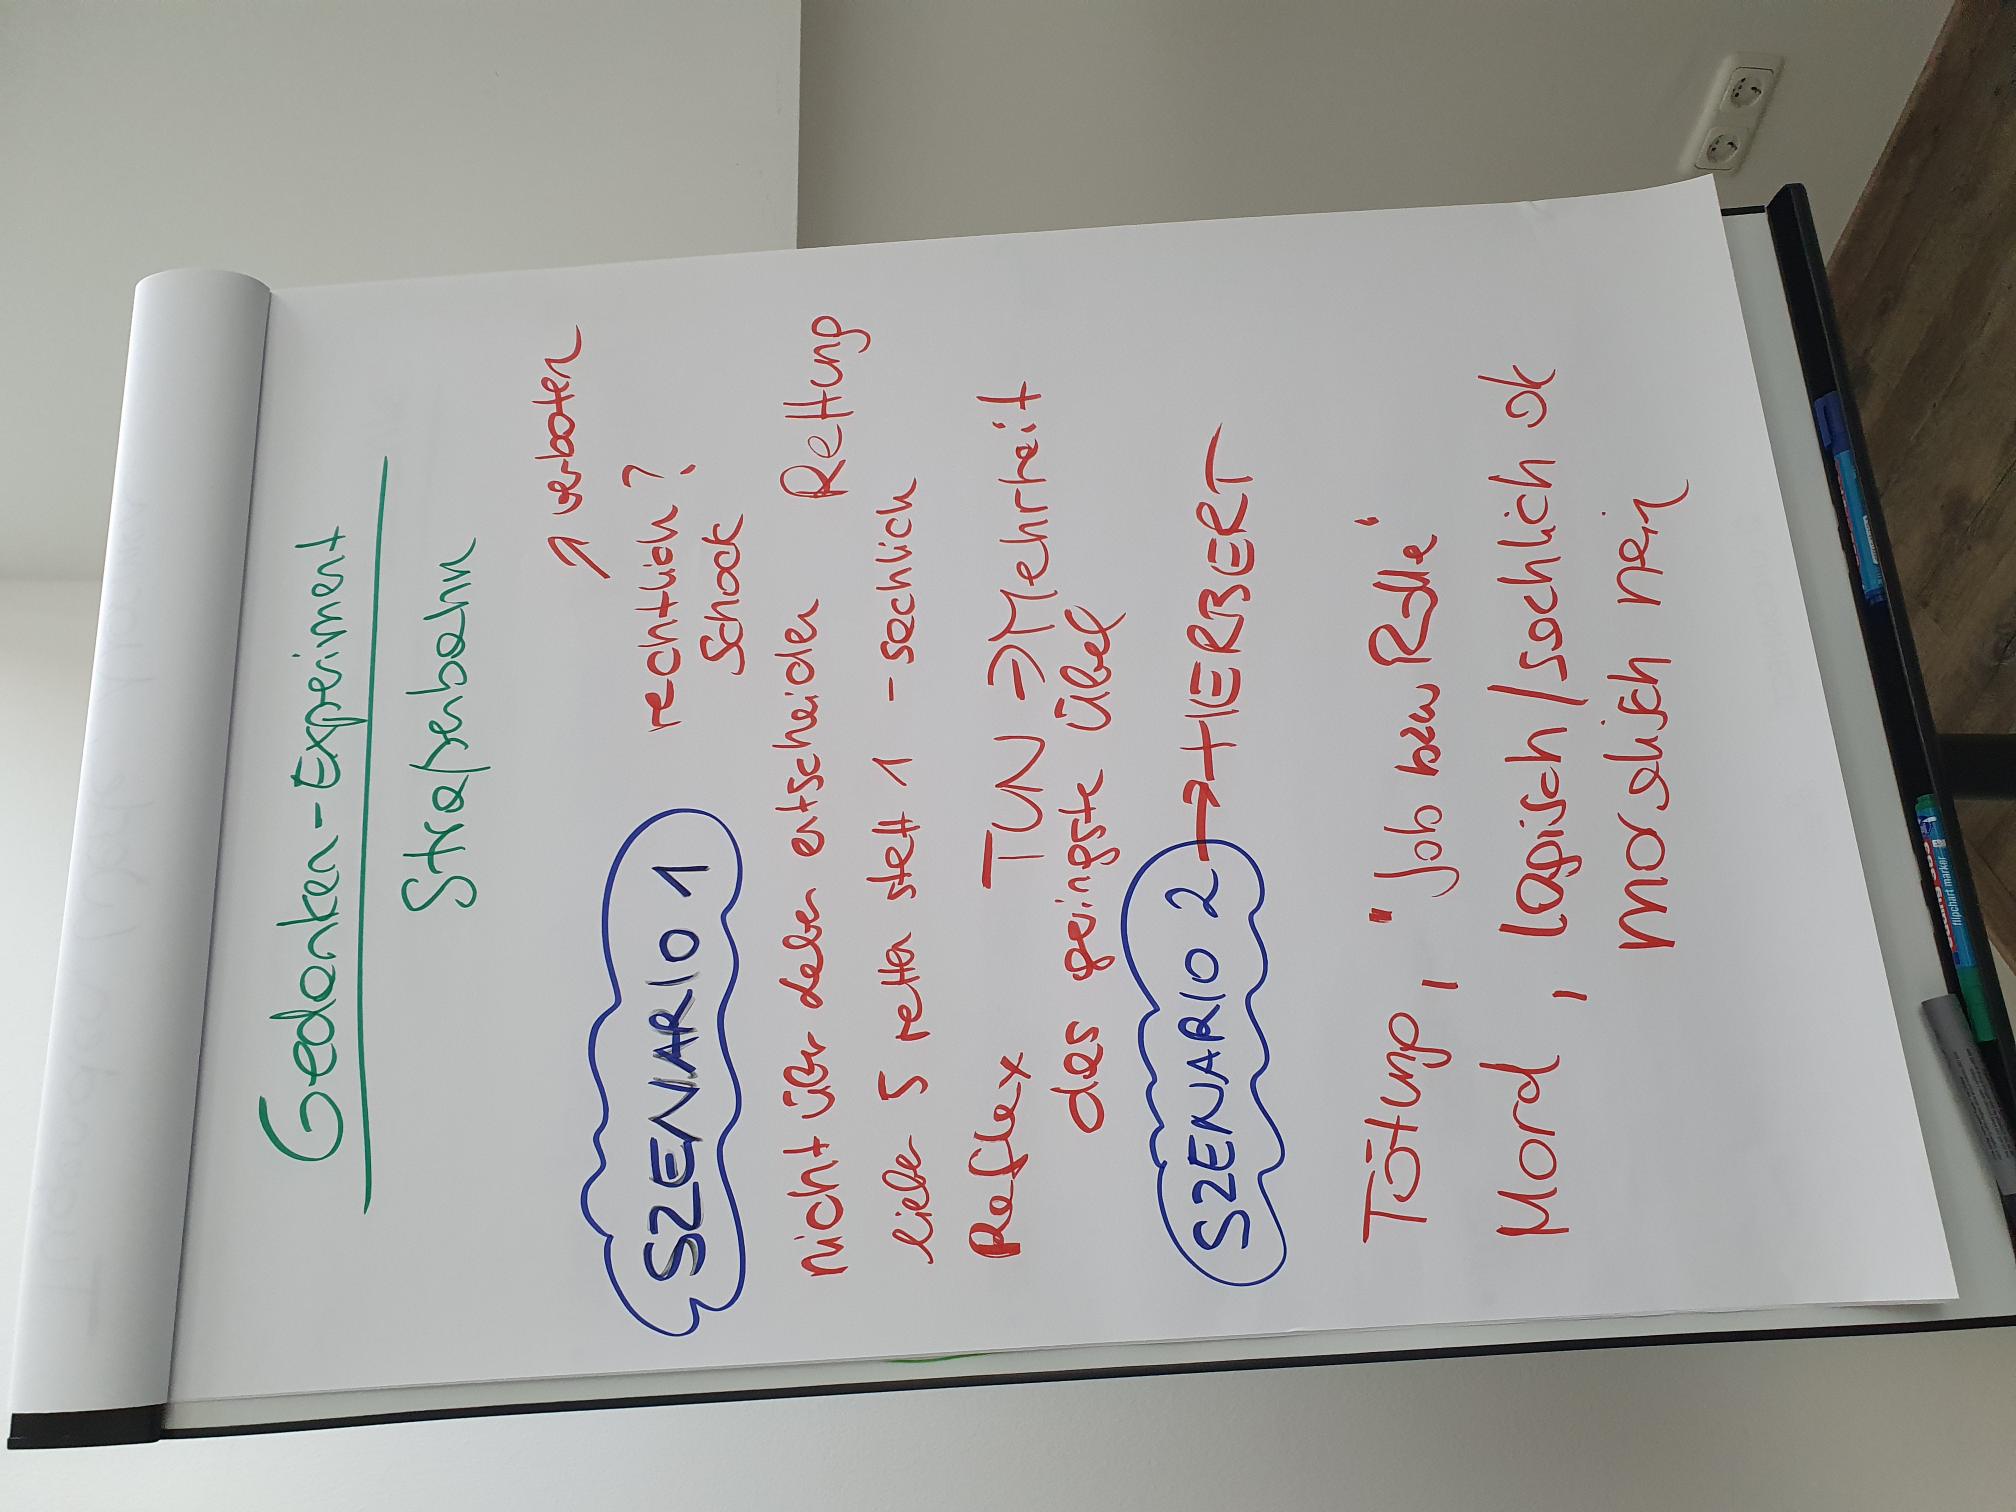 Gedanken-Experiment
Straßenbahn
↗ verboten
SZENARIO 1 rechtlich?
Schock
nicht über daben entscheiden Rettung
lieber 5 retten statt 1 - sachlich
Reflex TUN → Mehrheit
das geringste Übel
SZENARIO 2 → HERBERT
Tötung, "Job bzw Rolle"
Mord, logisch/sachlich ok
moralisch nein
flipchart marker